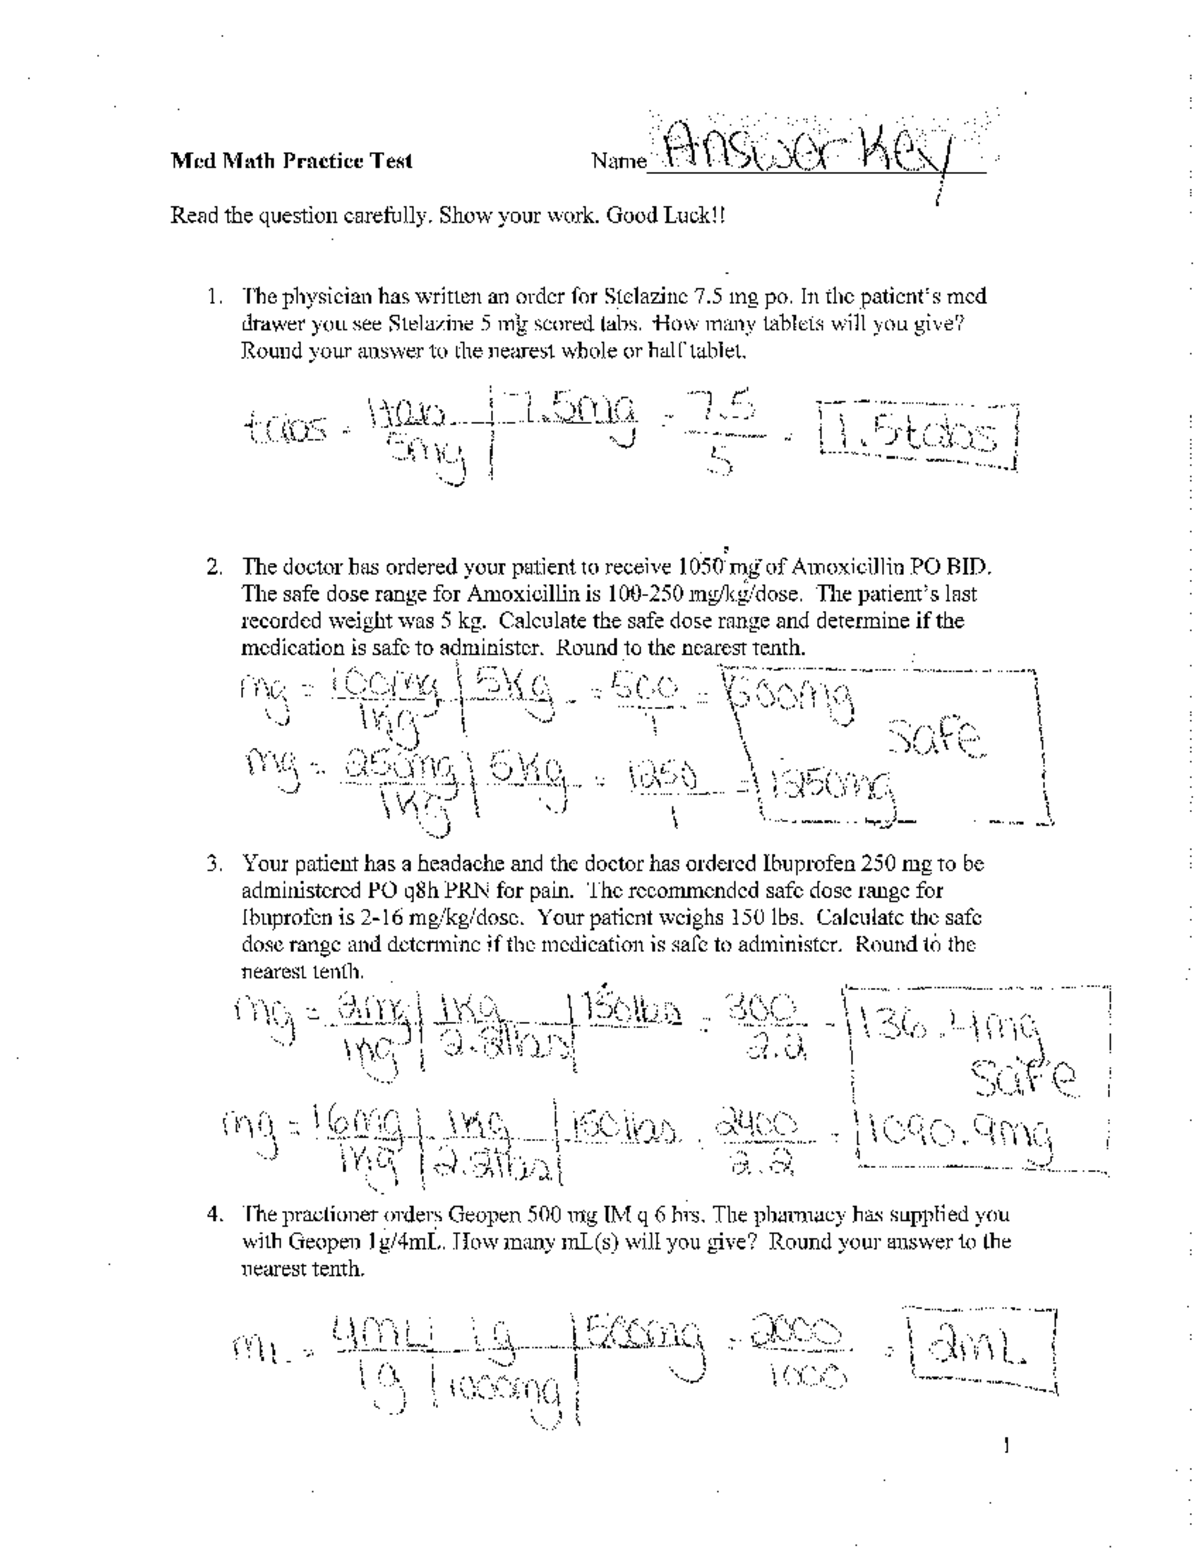 Med Math Practice Test Name Answer Key
Read the question carefully. Show your work. Good Luck!!
1. The physician has written an order for Stelazine 7.5 mg po. In the patient's med
drawer you see Stelazine 5 mg scored tabs. How many tablets will you give?
Round your answer to the nearest whole or half tablet.
tabs = 1tab | 7.5mg = 7.5 = 1.5tabs
5mg | 5
2. The doctor has ordered your patient to receive 1050 mg of Amoxicillin PO BID.
The safe dose range for Amoxicillin is 100-250 mg/kg/dose. The patient's last
recorded weight was 5 kg. Calculate the safe dose range and determine if the
medication is safe to administer. Round to the nearest tenth.
mg = 100mg | 5kg = 500 = 500mg
1kg | 1 safe
mg = 250mg | 5kg = 1250 = 1250mg
1kg | 1
3. Your patient has a headache and the doctor has ordered Ibuprofen 250 mg to be
administered PO q8h PRN for pain. The recommended safe dose range for
Ibuprofen is 2-16 mg/kg/dose. Your patient weighs 150 lbs. Calculate the safe
dose range and determine if the medication is safe to administer. Round to the
nearest tenth.
mg = 2mg | 1kg | 150lbs = 300 = 136.4mg
1kg | 2.2lbs | 2.2 safe
mg = 16mg | 1kg | 150lbs = 2400 = 1090.9mg
1kg | 2.2lbs | 2.2
4. The practioner orders Geopen 500 mg IM q 6 hrs. The pharmacy has supplied you
with Geopen 1g/4mL. How many mL(s) will you give? Round your answer to the
nearest tenth.
mL = 4mL | 1g | 500mg = 2000 = 2mL
1g | 1000mg | 1000
1